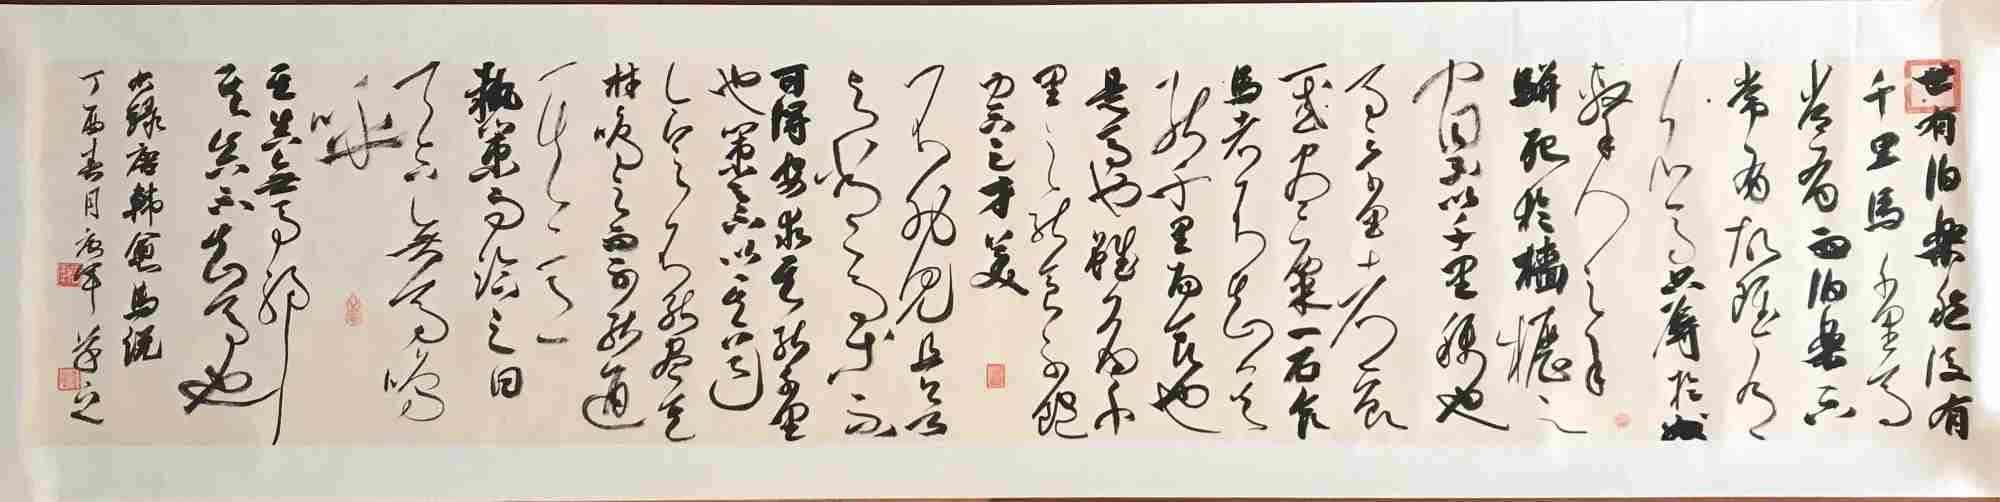 世有伯樂然後有
千里馬千里馬
常有而伯樂不
常有故雖有
名馬只辱於奴
隸人之手
駢死於槽櫪之
間不以千里稱也
馬之千里者一食
或盡粟一石食
馬者不知其
能千里而食也
是馬也雖有千
里之能食不飽
力不足才美
不外見且欲
與常馬等不
可得安求其能千里
也策之不以其道
食之不能盡其
材鳴之而不能通
其意
執策而臨之曰
天下無馬嗚
呼
其真無馬邪
其真不知馬也
唐韓愈馬説
丁酉春月